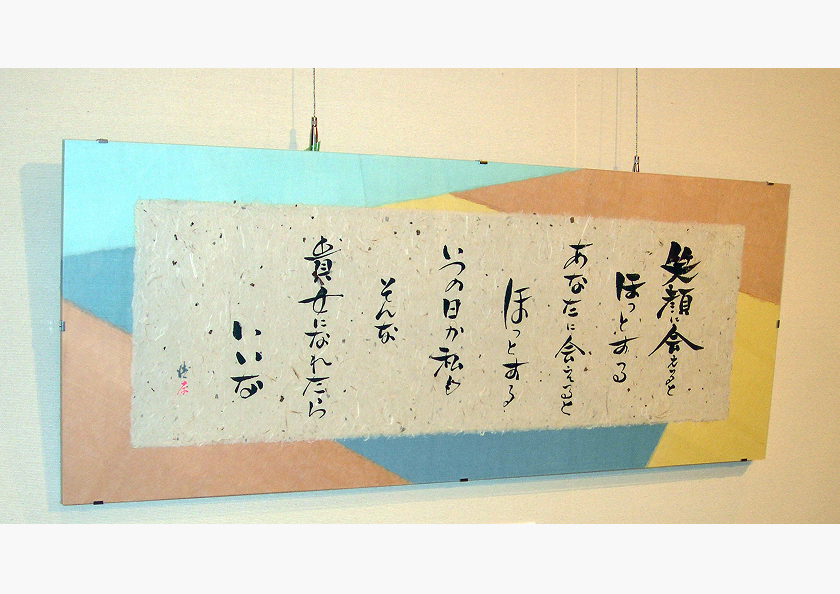 笑顔に会えると
ほっとする
あなたに会えると
ほっとする
いつの日か私も
そんな
貴女になれたら
いいな